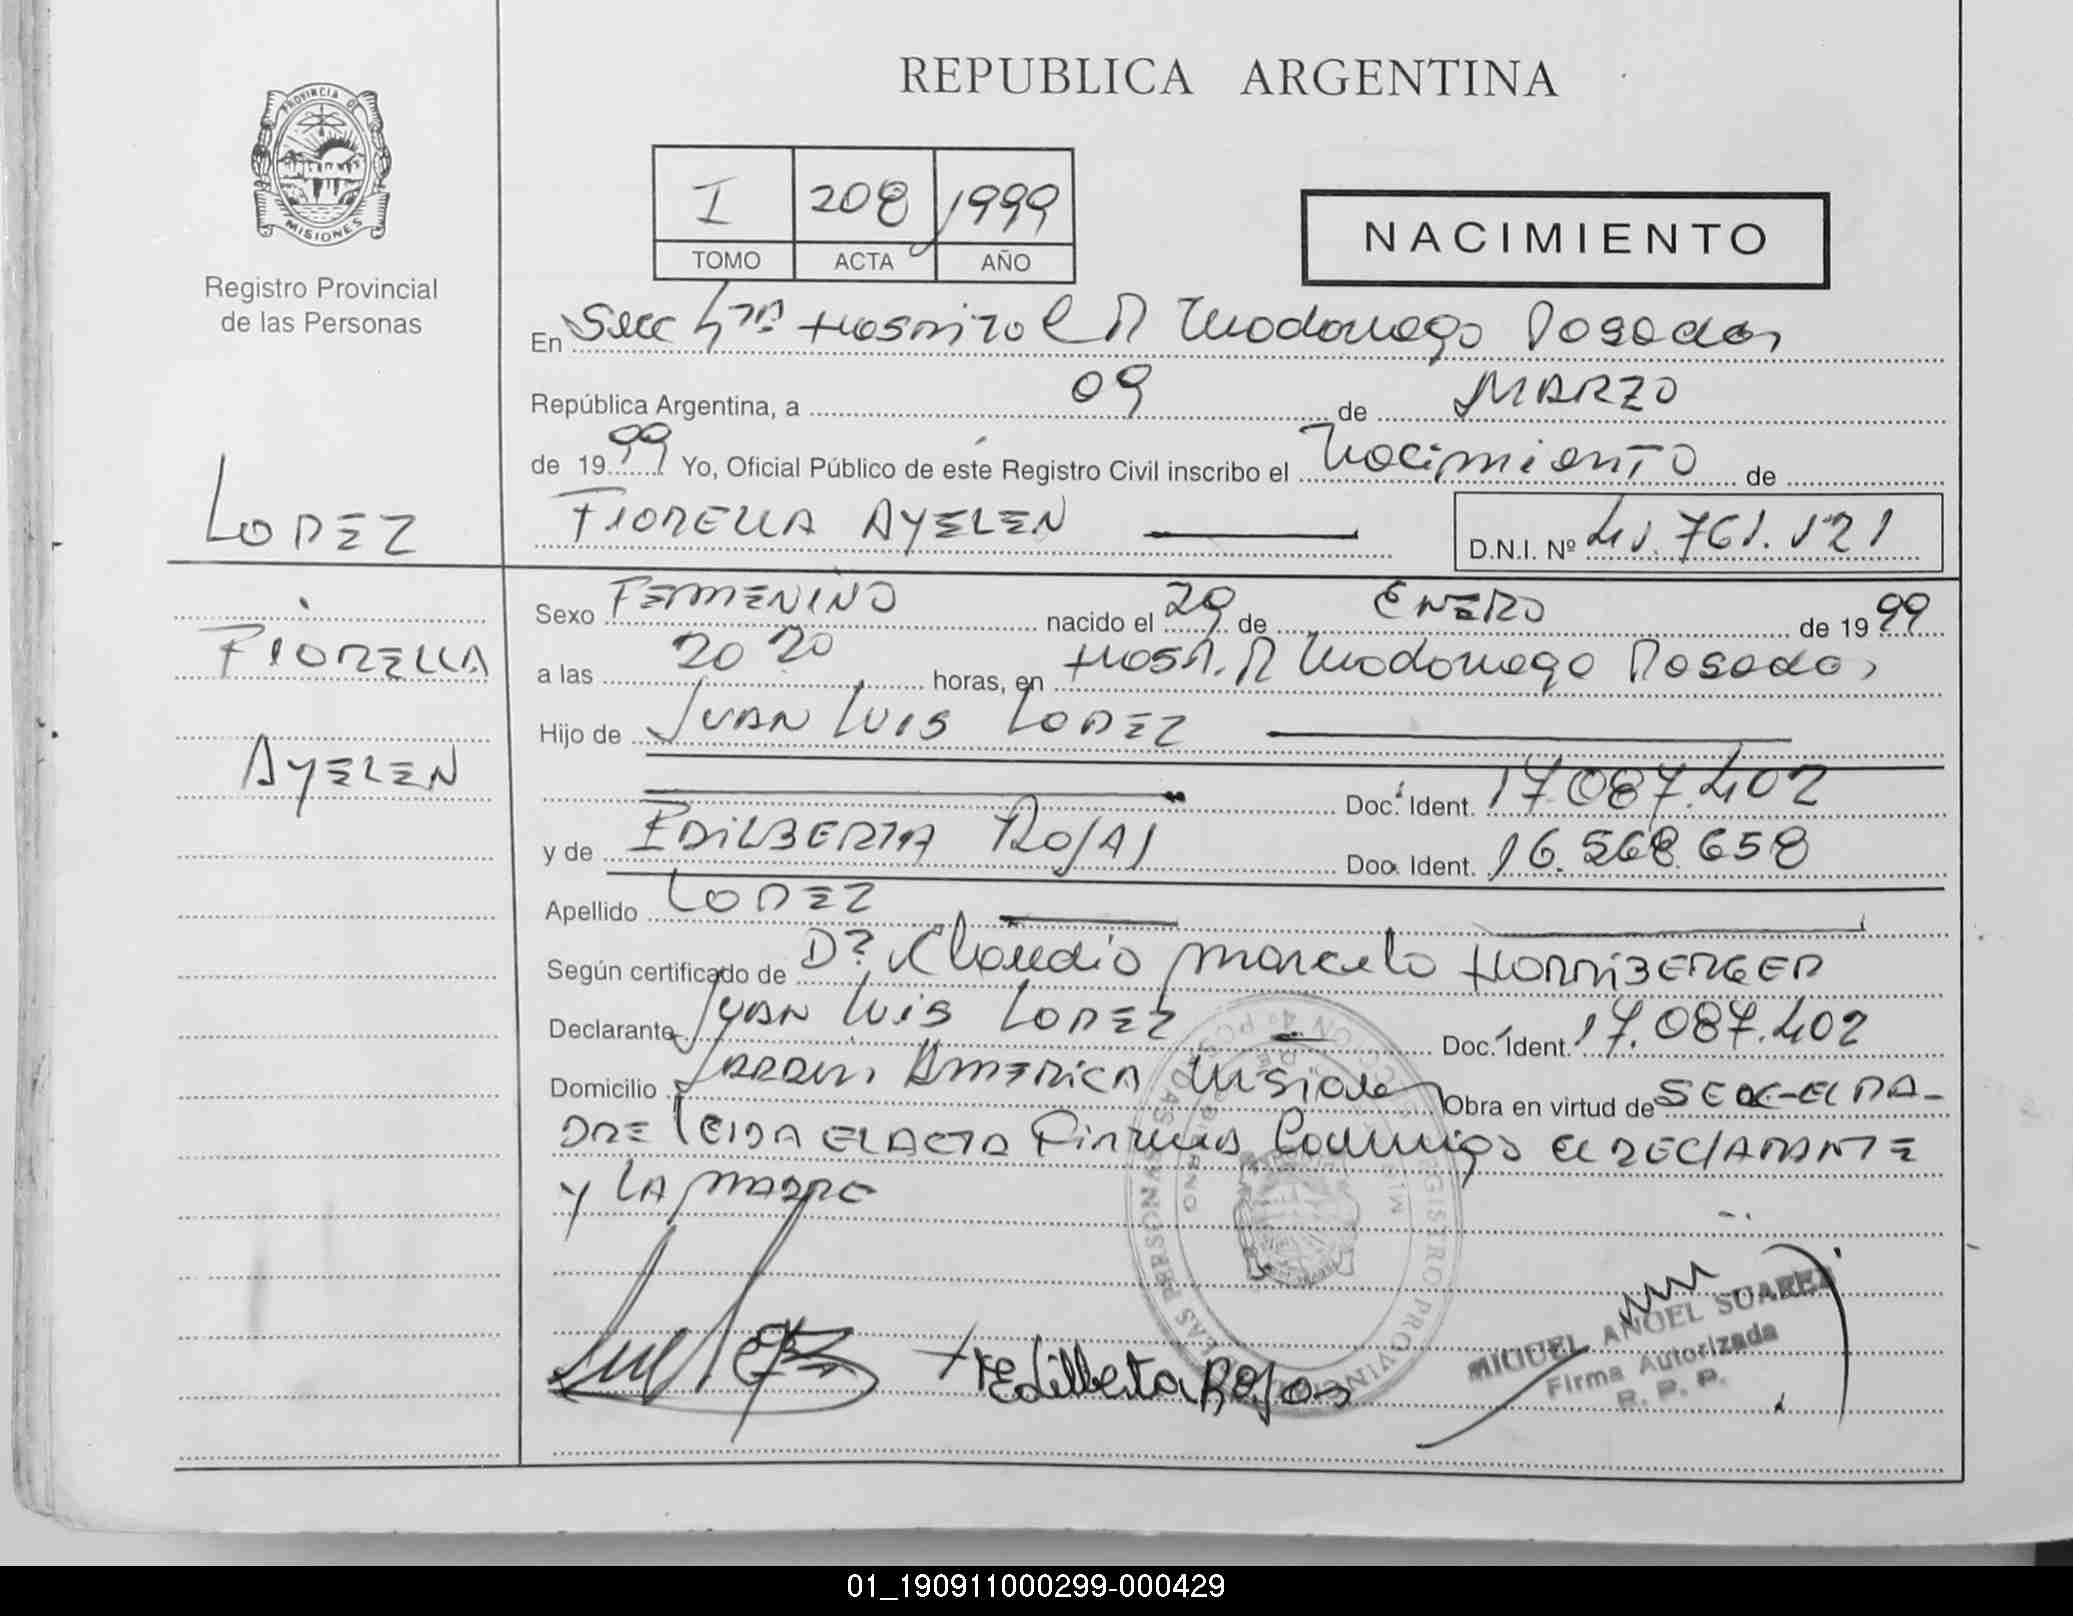 REPUBLICA ARGENTINA
PROVINCIA DE
MISIONES
Registro Provincial
de las Personas
I 208 1999
TOMO ACTA AÑO
NACIMIENTO
En Secc 4ta Hospital R Madariaga Posadas
República Argentina, a 09 de MARZO
de 1999 Yo, Oficial Público de este Registro Civil inscribo el Nacimiento de
FIORELLA AYELEN D.N.I. Nº 41.761.121
LOPEZ
FIORELLA
AYELEN
Sexo FEMENINO nacido el 29 de ENERO de 1999
a las 20 20 horas, en Hosp. R Madariaga Posadas
Hijo de JUAN LUIS LOPEZ
Doc. Ident. 17.087.402
y de EDILBERTA ROJAS Doc. Ident. 16.568.658
Apellido LOPEZ
Según certificado de Dr. Claudio Marcelo HORNIBERGER
Declarante JUAN LUIS LOPEZ Doc. Ident. 17.087.402
Domicilio JARDIN AMERICA Misiones Obra en virtud de SER EL PA-
DRE LEIDA EL ACTA Firman Conmigo EL DECLARANTE
Y LA MADRE
Edilberta Rojas
MIGUEL ANGEL SUAREZ
Firma Autorizada
R. P. P.
01_190911000299-000429